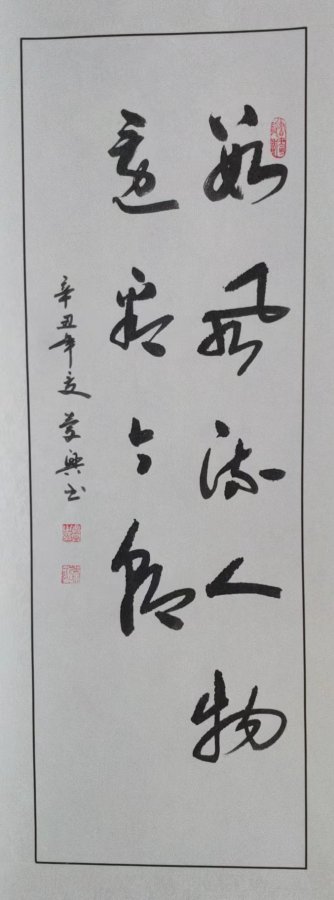 数风流人物
还看今朝
辛丑年夏 兴书